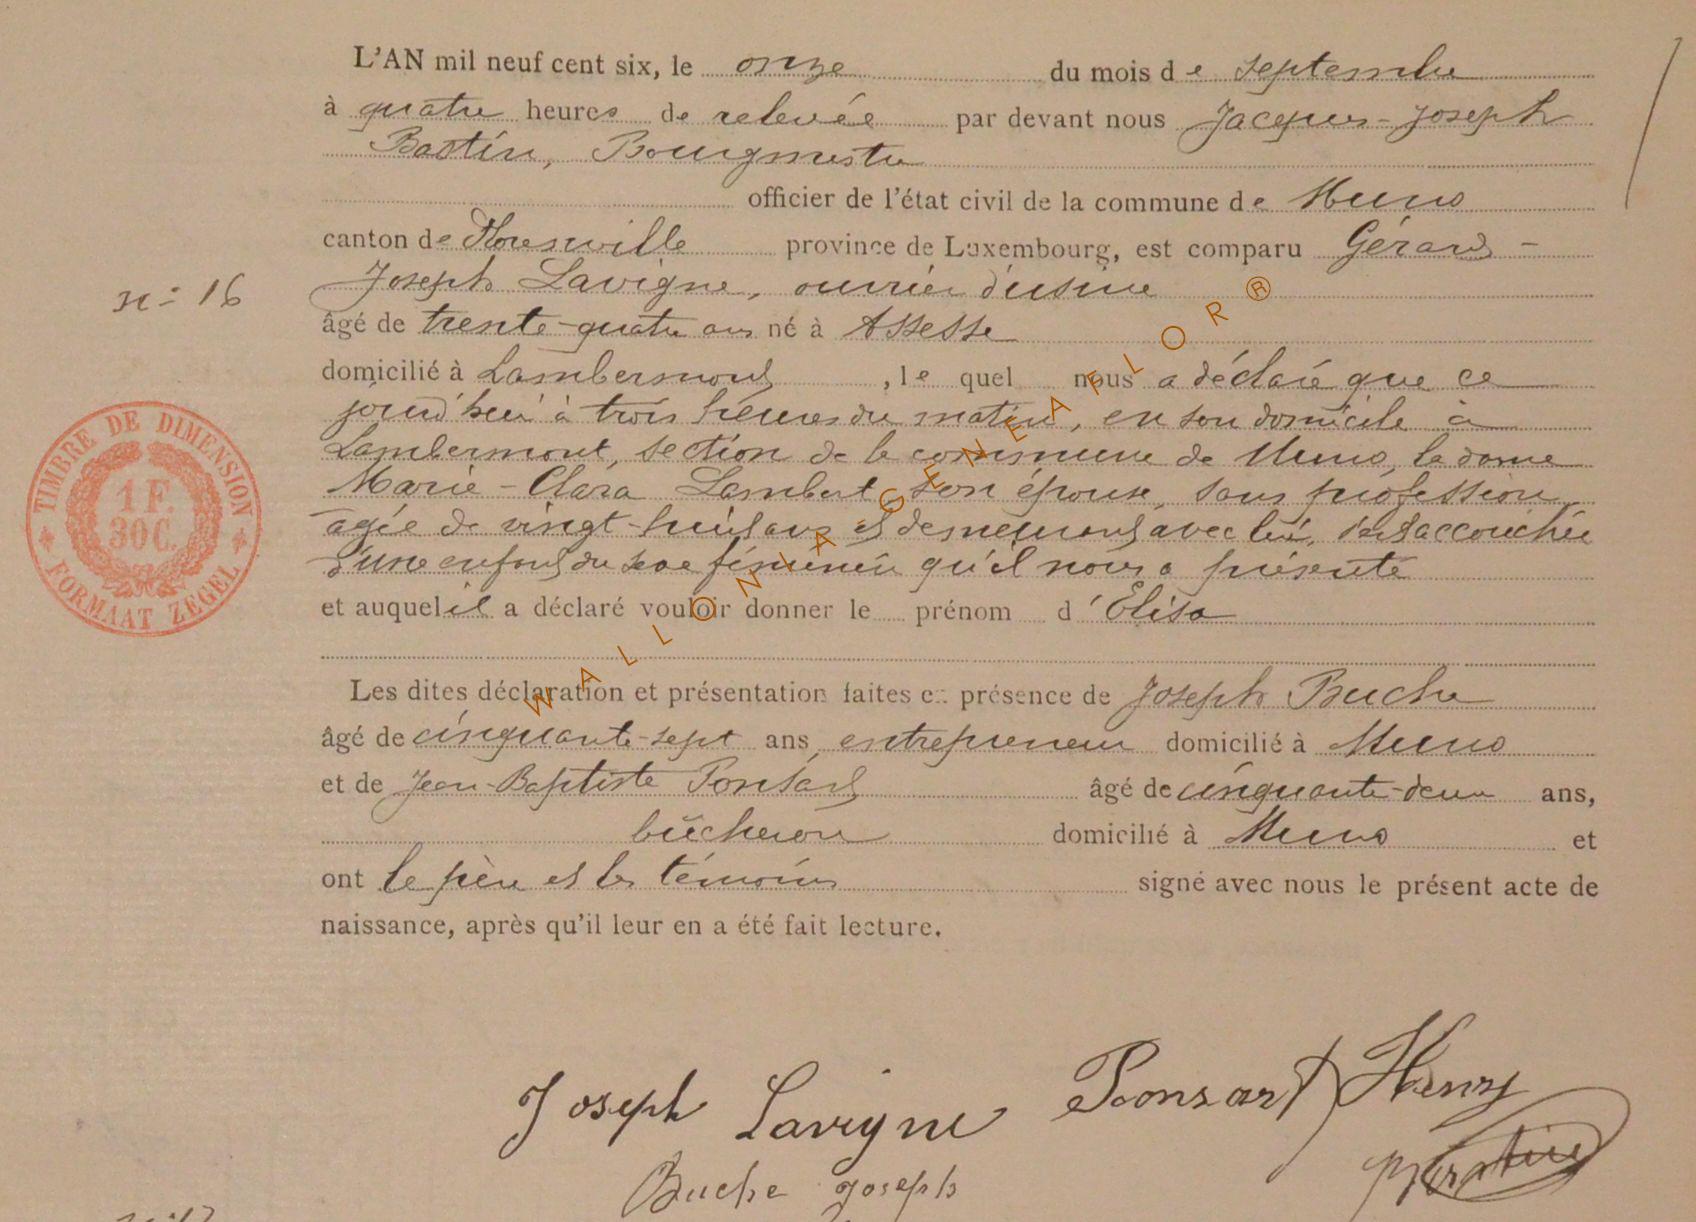 L'AN mil neuf cent six, le onze du mois de septembre
à quatre heures de relevée par devant nous Jacques-Joseph
Bastin, Bourgmestre
officier de l'état civil de la commune de Muno
canton de Florenville province de Luxembourg, est comparu Gérard-
Joseph Lavigne, ouvrier d'usine
n° 16
âgé de trente-quatre ans né à Assesse
domicilié à Lambermont, lequel nous a déclaré que ce
jourd'hui à trois heures du matin, en son domicile à
Lambermont, section de la commune de Muno, la dame
Marie-Clara Lambert son épouse, sans profession,
âgée de vingt-huit ans et demeurant avec lui, s'est accouchée
d'une enfant du sexe féminin qu'il nous a présenté
et auquel il a déclaré vouloir donner le prénom d'Elisa
Les dites déclaration et présentation faites en présence de Joseph Buche
âgé de cinquante-sept ans, entrepreneur domicilié à Muno
et de Jean-Baptiste Ponsard âgé de cinquante-deux ans,
bûcheron domicilié à Muno et
ont le père et les témoins signé avec nous le présent acte de
naissance, après qu'il leur en a été fait lecture.
TIMBRE DE DIMENSION
1 F.
30 C.
FORMAAT ZEGEL
WALLONIA GENEAFLOR ®
Joseph Lavigne Ponsart Henry
Buche Joseph